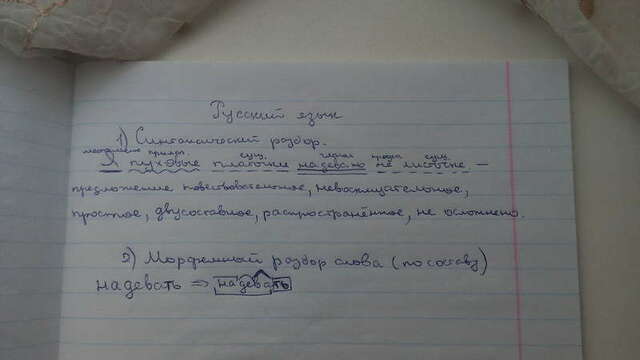 Русский язык
1) Синтаксический разбор.
местоимение прилаг. сущ. глагол сущ.
Я пуховые платочки надеваю на
предложение повествовательное, невосклицательное,
простое, двусоставное, распространённое, не осложнено.
2) Морфемный разбор слова (по составу)
надевать => надевать